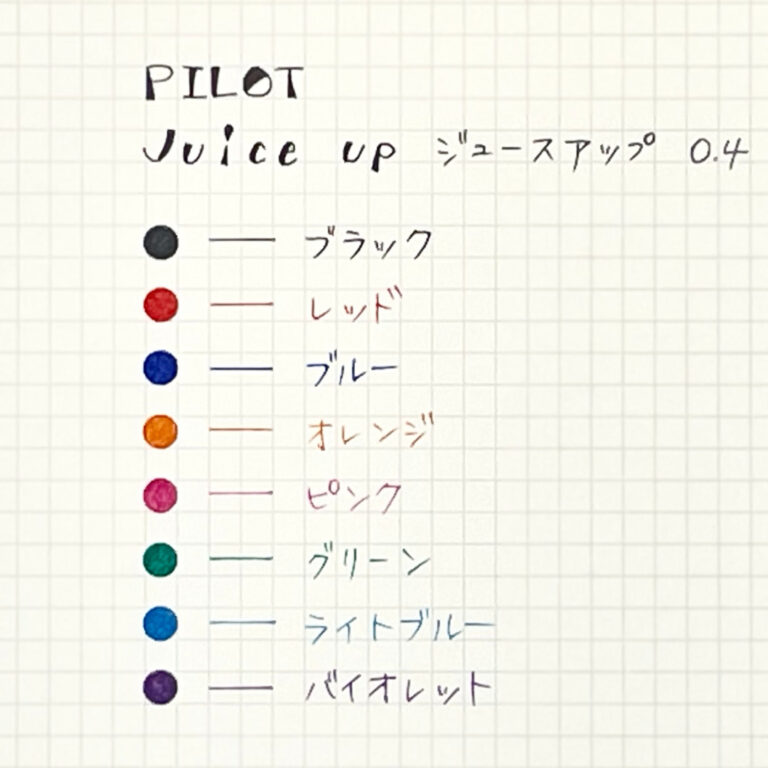 PILOT
Juice up ジュースアップ 0.4
ブラック
レッド
ブルー
オレンジ
ピンク
グリーン
ライトブルー
バイオレット